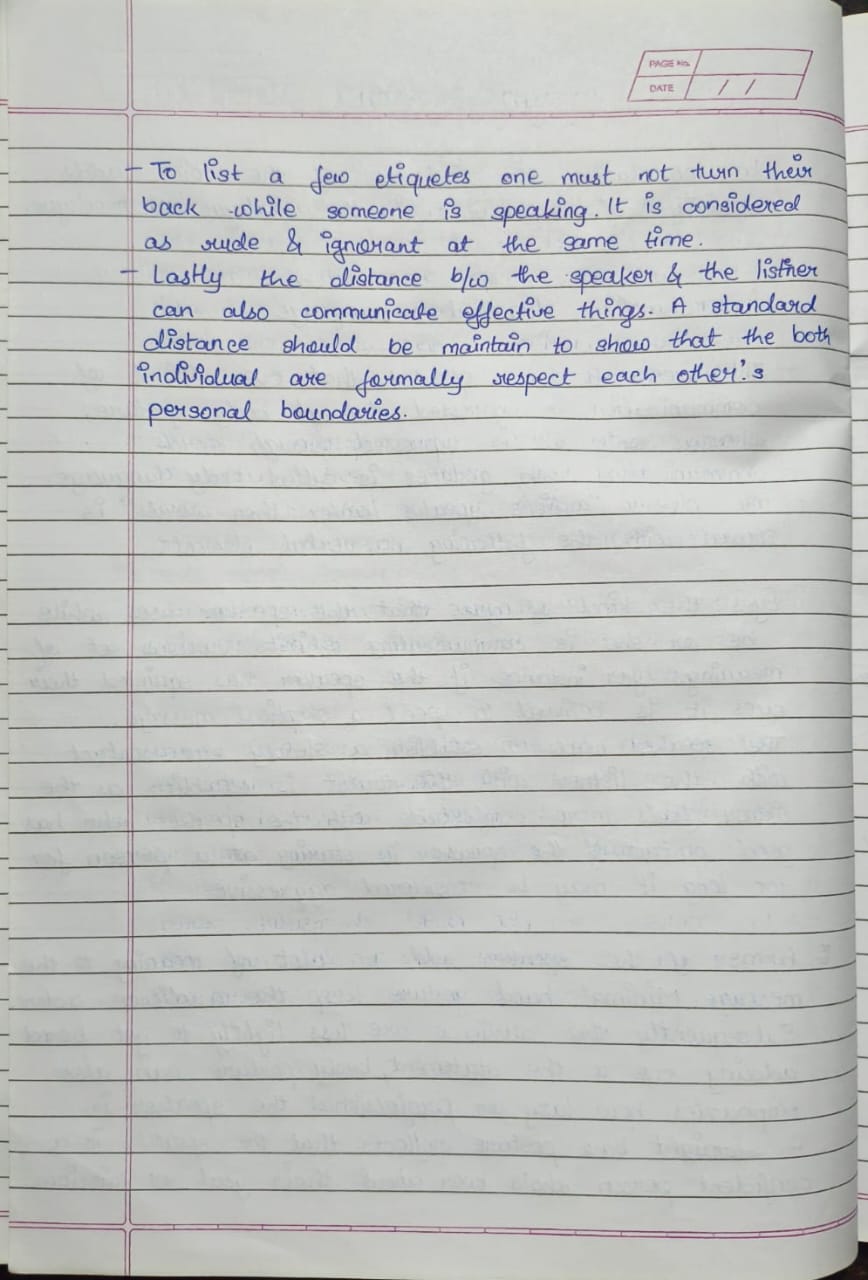 PAGE No.
DATE / /
- To list a few etiquetes one must not turn their
back while someone is speaking. It is considered
as rude & ignorant at the same time.
- Lastly the distance b/w the speaker & the listner
can also communicate effective things. A standard
distance should be maintain to show that the both
individual are formally respect each other's
personal boundaries.